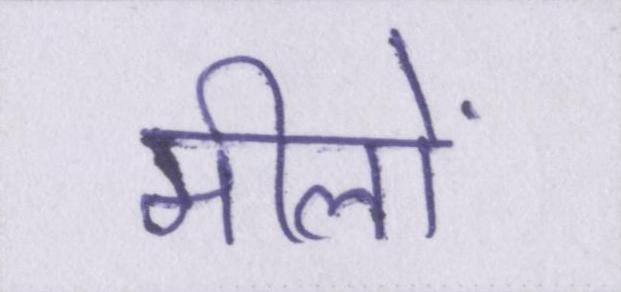 मीलों